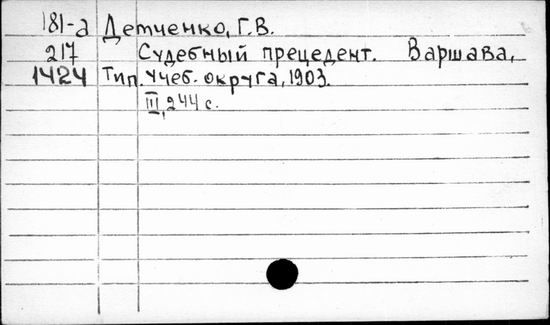 181-а Демченко, Г.В.
217 Судебный прецедент. Варшава,
1424 Тип. Учеб. округа, 1903.
III, 244 с.